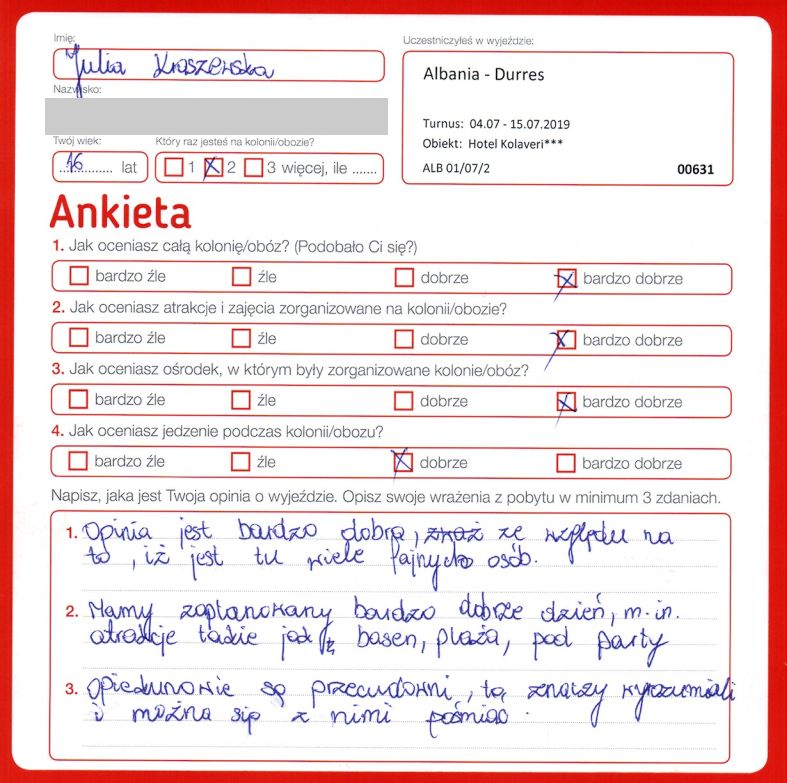 Imię:
Julia Kraszewska
Nazwisko:
Twój wiek:
16 lat
Który raz jesteś na kolonii/obozie?
1 X 2 3 więcej, ile .......
Uczestniczyłeś w wyjeździe:
Albania - Durres
Turnus: 04.07 - 15.07.2019
Obiekt: Hotel Kolaveri***
ALB 01/07/2 00631
Ankieta
1. Jak oceniasz całą kolonię/obóz? (Podobało Ci się?)
bardzo źle źle dobrze X bardzo dobrze
2. Jak oceniasz atrakcje i zajęcia zorganizowane na kolonii/obozie?
bardzo źle źle dobrze X bardzo dobrze
3. Jak oceniasz ośrodek, w którym były zorganizowane kolonie/obóz?
bardzo źle źle dobrze X bardzo dobrze
4. Jak oceniasz jedzenie podczas kolonii/obozu?
bardzo źle źle X dobrze bardzo dobrze
Napisz, jaka jest Twoja opinia o wyjeździe. Opisz swoje wrażenia z pobytu w minimum 3 zdaniach.
1. Opinia jest bardzo dobra, ze względu na
to, iż jest tu wiele fajnych osób.
2. Mamy zaplanowany bardzo dobrze dzień, m.in.
atrakcje takie jak basen, plaża, party
3. Opiekunowie są przecudowni, to znaczy wyrozumiali
i można się z nimi pośmiać.